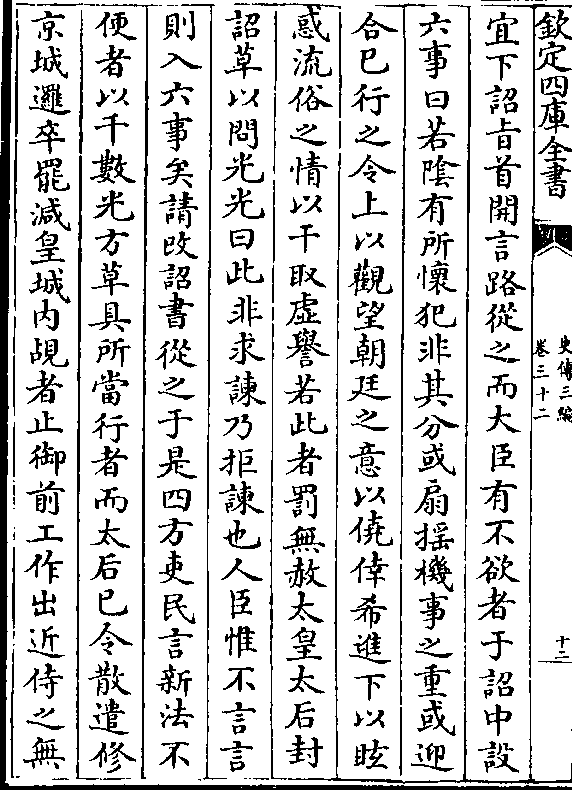 欽定四庫全書
史傳三編
卷三十二
十二
宜下詔旨首開言路從之而大臣有不欲者于詔中設
六事曰若陰有所懷犯非其分或扇揺機事之重或迎
合已行之令上以觀望朝廷之意以僥倖希進下以眩
惑流俗之情以干取虛譽若此者罰無赦太皇太后封
詔草以問光光曰此非求諫乃拒諫也人臣惟不言言
則入六事矣請改詔書從之于是四方吏民言新法不
便者以千數光方草具所當行者而太后已令散遣修
京城邏卒罷減皇城内覘者止御前工作出近侍之無